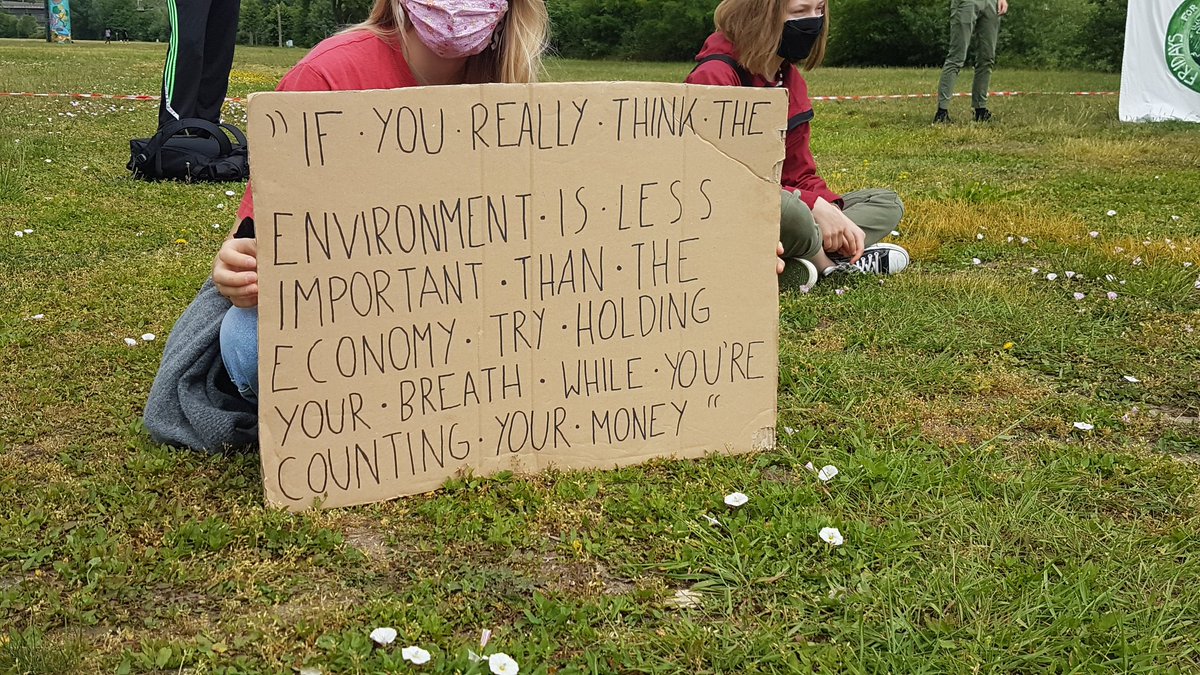 "IF·YOU·REALLY·THINK·THE
ENVIRONMENT·IS·LESS
IMPORTANT·THAN·THE
ECONOMY·TRY·HOLDING
YOUR·BREATH·WHILE·YOU'RE
COUNTING·YOUR·MONEY"
FRIDAYS FOR